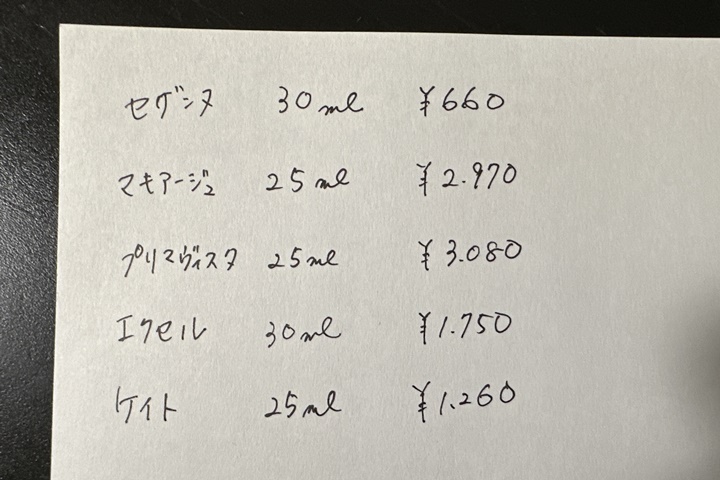 セザンヌ 30ml ¥660
マキアージュ 25ml ¥2.970
プリマヴィスタ 25ml ¥3.080
エクセル 30ml ¥1.750
ケイト 25ml ¥1.260